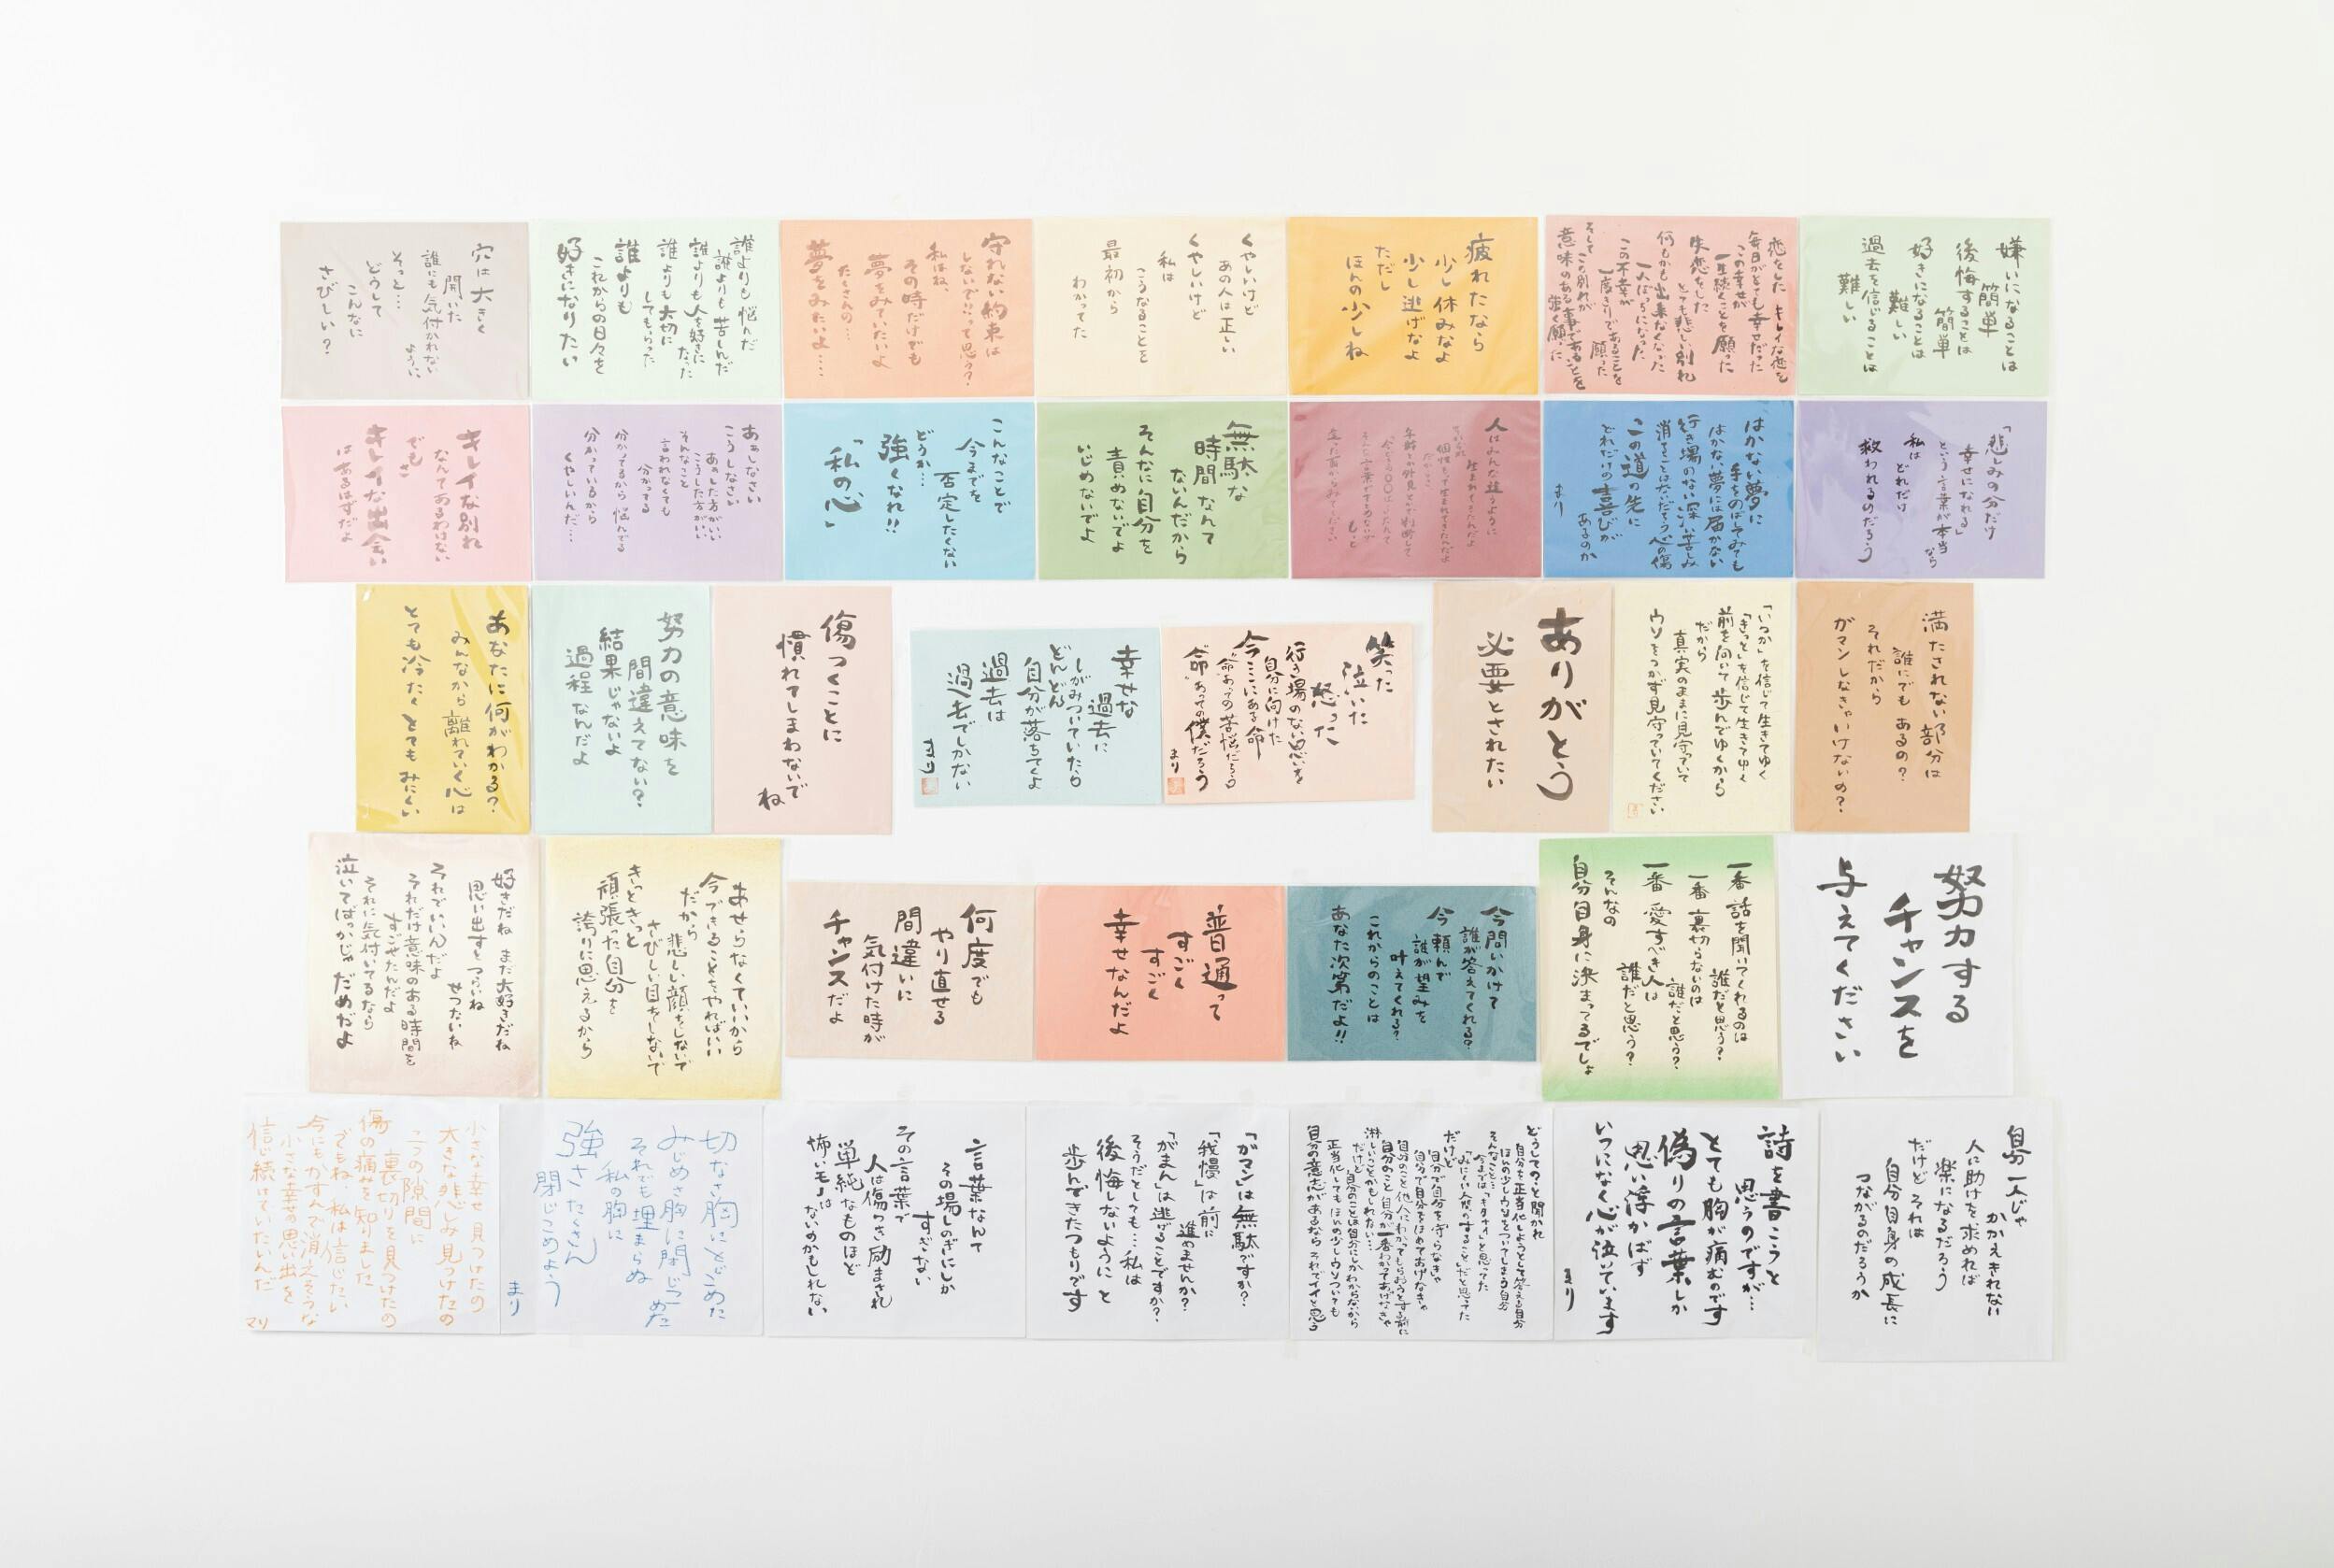 穴は大きく
開いた
誰にも気付かれない
ように
そっと…
どうして
こんなに
さびしい？
誰よりも悩んだ
誰よりも苦しんだ
誰よりも人を好きに
なった
誰よりも大切に
してもらった
誰よりも
これからの日々を
好きになりたい
守れない約束は
しないで…って思う？
私はね、
その時だけでも
夢をみていたいよ
たくさんの…
夢をみたいよ…
くやしいけど
あの人は正しい
くやしいけど
私は
こうなることを
最初から
わかってた
疲れたなら
少し休みなよ
少し逃げなよ
ただし
ほんの少しね
恋をした キレイな恋を
毎日がとても幸せだった
この幸せが
一生続くことを願った
失恋をした
とても悲しい別れ
何もかも出来なくなった
一人ぼっちになった
この不幸が
一度きりであることを
願った
そしてこの別れが
意味のある事であることを
強く願った
嫌いになることは
簡単
後悔することは
簡単
好きになることは
難しい
過去を信じることは
難しい
キレイな別れ
なんてあるわけない
でもさ
キレイな出会い
はあるはずだよ
あぁしなさい
こうしなさい
あぁした方がいい
こうした方がいい
そんなこと
言われなくても
分かってる
分かってるから 悩んでる
分かっているから
くやしいんだ…
こんなことで
今までを
否定したくない
どうか…
強くなれ!!
「私の心」
無駄な
時間なんて
ないんだから
そんなに自分を
責めないでよ
いじめないでよ
人はみんな違うように
生まれてきたんだよ
はかない夢に
手をのばしてみても
はかない夢には届かない
行き場のない深い苦しみ
消えることはないだろう心の傷
この道の先に
どれだけの喜びが
あるのか
まり
「悲しみの分だけ
幸せになれる」
という言葉が本当
なら
私は
どれだけ
救われるのだろう
あなたに何がわかる？
みんなから離れていく心は
とても冷たく とても みにくい
努力の意味を
間違えてない？
結果じゃないよ
過程なんだよ
傷つくことに
慣れてしまわないで
ね
幸せな
過去に
しがみついていたら
どんどん
自分が落ちてくよ
過去は
過去でしかない
まり
笑った
泣いた
怒った
行き場のない思いを
自分に向けた
今ここにある命
命あっての苦悩だろう
命あっての僕だろう
まり
ありがとう
必要とされたい
「いつか」を信じて生きてゆく
「きっと」を信じて生きてゆく
前を向いて歩んでゆくから
だから
真実のままに見守っていて
ウソをつかず見守っていてください
満たされない部分は
誰にでも あるの？
それだから
ガマンしなきゃいけないの？
好きだね まだ大好きだね
思い出すとつらいね
せつないね
それでいいんだよ
それだけ意味のある時間を
すごせたんだよ
それに気付いてるなら
泣いてばっかじゃだめだよ
あせらなくていいから
今できることをやればいい
だから
悲しい顔をしないで
さびしい目をしないで
きっときっと
頑張った自分を
誇りに思えるから
何度でも
やり直せる
間違いに
気付けた時が
チャンスだよ
普通って
すごく
すごく
幸せなんだよ
今問いかけて
誰が答えてくれる？
今頼んで
誰が望みを
叶えてくれる？
これからのことは
あなた次第だよ!!
一番話を聞いてくれるのは
誰だと思う？
一番裏切らないのは
誰だと思う？
一番愛すべき人は
誰だと思う？
そんなの
自分自身に決まってるでしょ
努力する
チャンスを
与えてください
小さな幸せ見つけたの
大きな悲しみ見つけたの
二つの隙間に
裏切りを見つけたの
傷の痛みを知りました
でもね、私は信じたい
今にもかすんで消えそうな
小さな幸せの思い出を
信じ続けていたいんだ
マリ
切なさ胸にとじこめた
みじめさ胸に閉じこ
めた
それでも埋まらぬ
私の胸に
強さたくさん
閉じこめよう
まり
言葉なんて
その場しのぎにしか
すぎない
その言葉で
人は傷つき励まされ
単純なものほど
怖いモノは
ないのかもしれない
「ガマン」は無駄ですか？
「我慢」は前に
進めませんか？
「がまん」は逃げることですか？
そうだとしても…私は
後悔しないようにと
歩んできたつもりです
どうしてのこと聞かれ
自分を正当化しようとして答える自分
ほんの少しウソをついてしまう自分
そんなことに…
今までは「キタナイ」と思ってた
「みにくい人間のすること」だと思ってた
だけど
自分で自分を守らなきゃ
自分で自分をほめてあげなきゃ
自分のこと他人にわかってもらおうとする前に
自分のこと自分が一番わかってあげなきゃ
淋しいことかもしれない…
だけど
自分のことは自分にしかわからないから
正当化してもほんの少しウソついても
自分の意志があるなら それでイイと思う
詩を書こうと
思うのですが…
とても胸が痛むのです
偽りの言葉しか
思い浮かばず
いつになく心が泣いています
まり
自分一人じゃ
かかえきれない
人に助けを求めれば
楽になるだろう
だけど それは
自分自身の成長に
つながるのだろうか